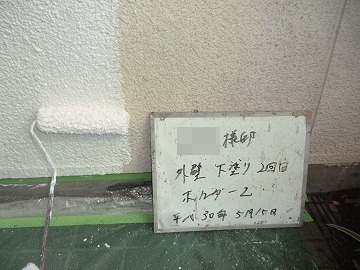 様邸
外壁 下塗り 2回目
ホルダーZ
平成 30年 5月15日